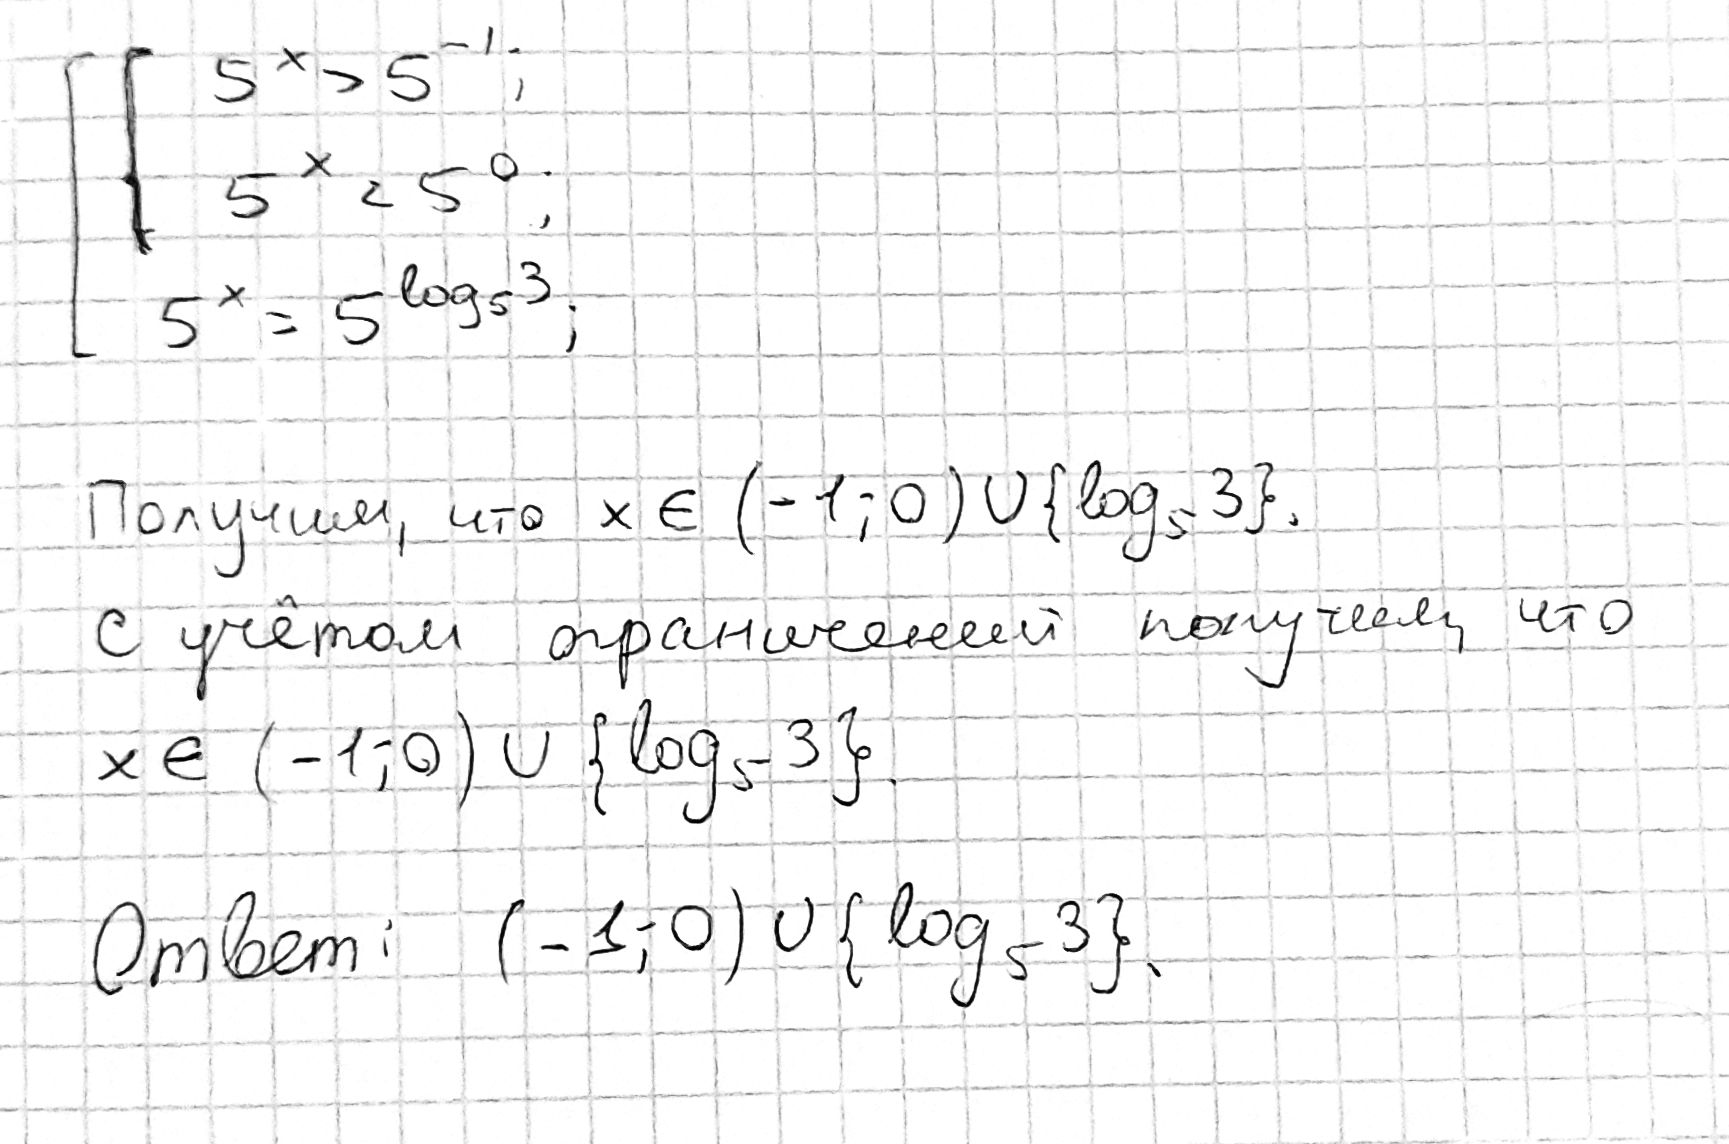 5^x > 5^{-1};
5^x < 5^0;
5^x = 5^{log_5 3};
Получим, что x ∈ (-1; 0) ∪ {log_5 3}.
С учётом ограничений получим, что
x ∈ (-1; 0) ∪ {log_5 3}.
Ответ: (-1; 0) ∪ {log_5 3}.